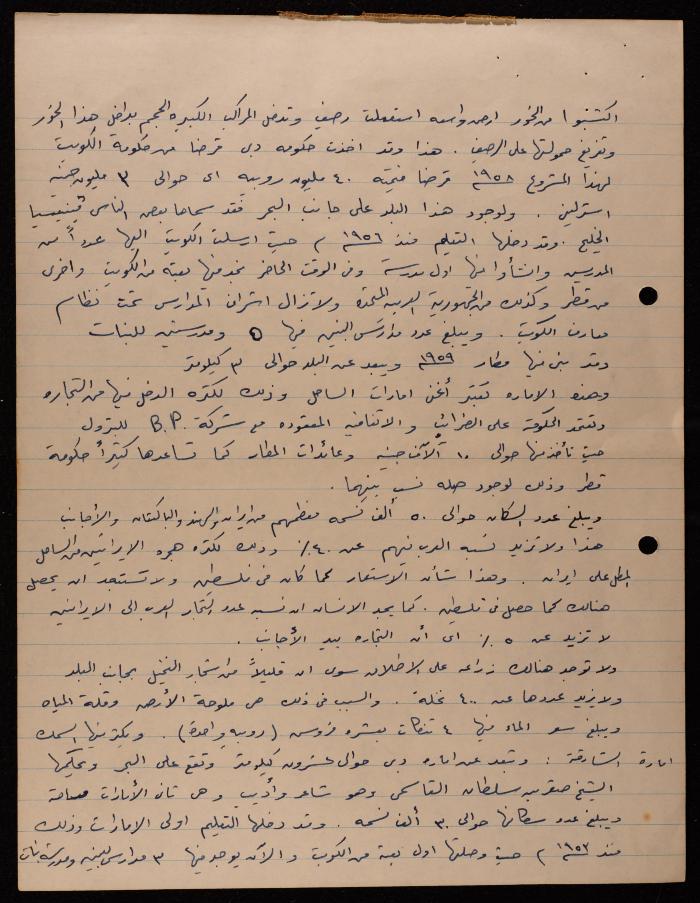 اكتسبوا من الخور ارض واسعه استعملت رصيف وتدخل المراكب الكبيره الحجم بداخل هذا الخور
وتفريغ حمولتها على الرصيف . هذا وقد اخذت حكومه دبى قرضا من حكومة الكويت
لهذا المشروع ١٩٥٨ قرضا قيمته ٤٠ مليون روبيه اى حوالى ٣ مليون جنيه
استرلينى . ولوجود هذا البلد على جانب البحر فقد سماها بعض الناس فينيسيا
الخليج . وقد دخلها التعليم منذ ١٩٥٦ م حيث ارسلت الكويت اليها عدداً من
المدرسين وانشأوا فيها اول مدرسة وفى الوقت الحاضر نجد فيها بعثة من الكويت واخرى
من قطر وكذلك من الجمهورية العربيه المتحده ولا تزال اشراف المدارس تحت نظام
معارف الكويت . ويبلغ عدد مدارس البنين فيها ٥ ومدرستين للبنات
وقد بنى فيها مطار ١٩٥٩ ويبعد عن البلد حوالى ٣ كيلومتر
وهذه الاماره تعتبر أغنى امارات الساحل وذلك لكثره الدخل فيها من التجاره
وتعتمد الحكومة على الضرائب والاتفاقيه المعقوده مع شركة B.P. للبترول
حيث تأخذ منها حوالى ١٠ آلآف جنيه وعائدات المطار كما تساعدها كثيراً حكومة
قطر وذلك لوجود صله نسب بينهما .
ويبلغ عدد السكان حوالى ٥٠ ألف نسمه معظمهم من ايران والهند والباكستان والأجانب
هذا ولا تزيد نسبه العرب فيهم عن ٤٠٪ وذلك لكثره هجره الايرانيين من الساحل
المطل على ايران . وهذا شأن الاستعمار كما كان فى فلسطين ولا تستبعد ان يحصل
هنالك كما حصل فى فلسطين . كما يجد الانسان ان نسبه عدد التجار العرب الى الايرانيين
لا تزيد عن ٥ ٪ اى أن التجاره بيد الأجانب .
ولا توجد هنالك زراعه على الاطلاق سوى ان قليلاً من اشجار النخيل بجانب البلد
ولا يزيد عددها عن ٤٠٠ نخلة . والسبب فى ذلك هى ملوحة الأرض وقلة المياه
ويبلغ سعر الماء فيها ٤ تنكات بعشره قروس (روبيه واحدة) . ويكثر فيها السمك
امارة الشارقة : وتبعد عن اماره دبى حوالى عشرون كيلومتر وتقع على البحر ويحكمها
الشيخ صقر بن سلطان القاسمى وهو شاعر وأديب وهى ثانى الأمارات مساحة
ويبلغ عدد سكانها حوالى ٣٠ ألف نسمه . وقد دخلها التعليم اولى الامارات وذلك
منذ ١٩٥٢ م حيث وصلتها اول بعثة من الكويت والآن يوجد فيها ٣ مدارس للبنين ومدرسة بنات